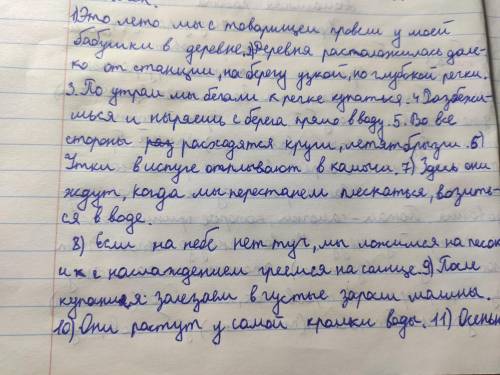 1)Это лето мы с товарищем провели у моей
бабушки в деревне.2)Деревня расположилась дале-
ко от станции, на берегу узкой, но глубокой речки.
3. По утрам мы бегали к речке купаться. 4. Разбежи-
шься и ныряешь с берега прямо в воду. 5. Во все
стороны расходятся круги, летят брызги. 6)
Утки в испуге отплывают в камыши. 7) Здесь они
ждут, когда мы перестанем плескаться, возить-
ся в воде.
8) Если на небе нет туч, мы ложимся на песок
и с наслаждением греемся на солнце. 9) После
купания залезаем в густые заросли малины.
10) Они растут у самой кромки воды. 11) Осенью